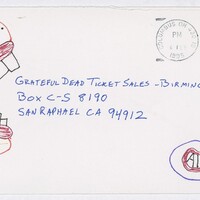 PM
GRATEFUL DEAD TICKET SALES - BIRMING
BOX C-S 8190
SAN RAPHAEL CA 94912